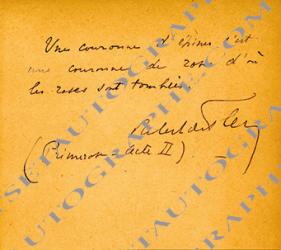 Une couronne d'épines c'est
une couronne de roses d'où
les roses sont tombées.
Robert de Flers
(Primerose - acte II)